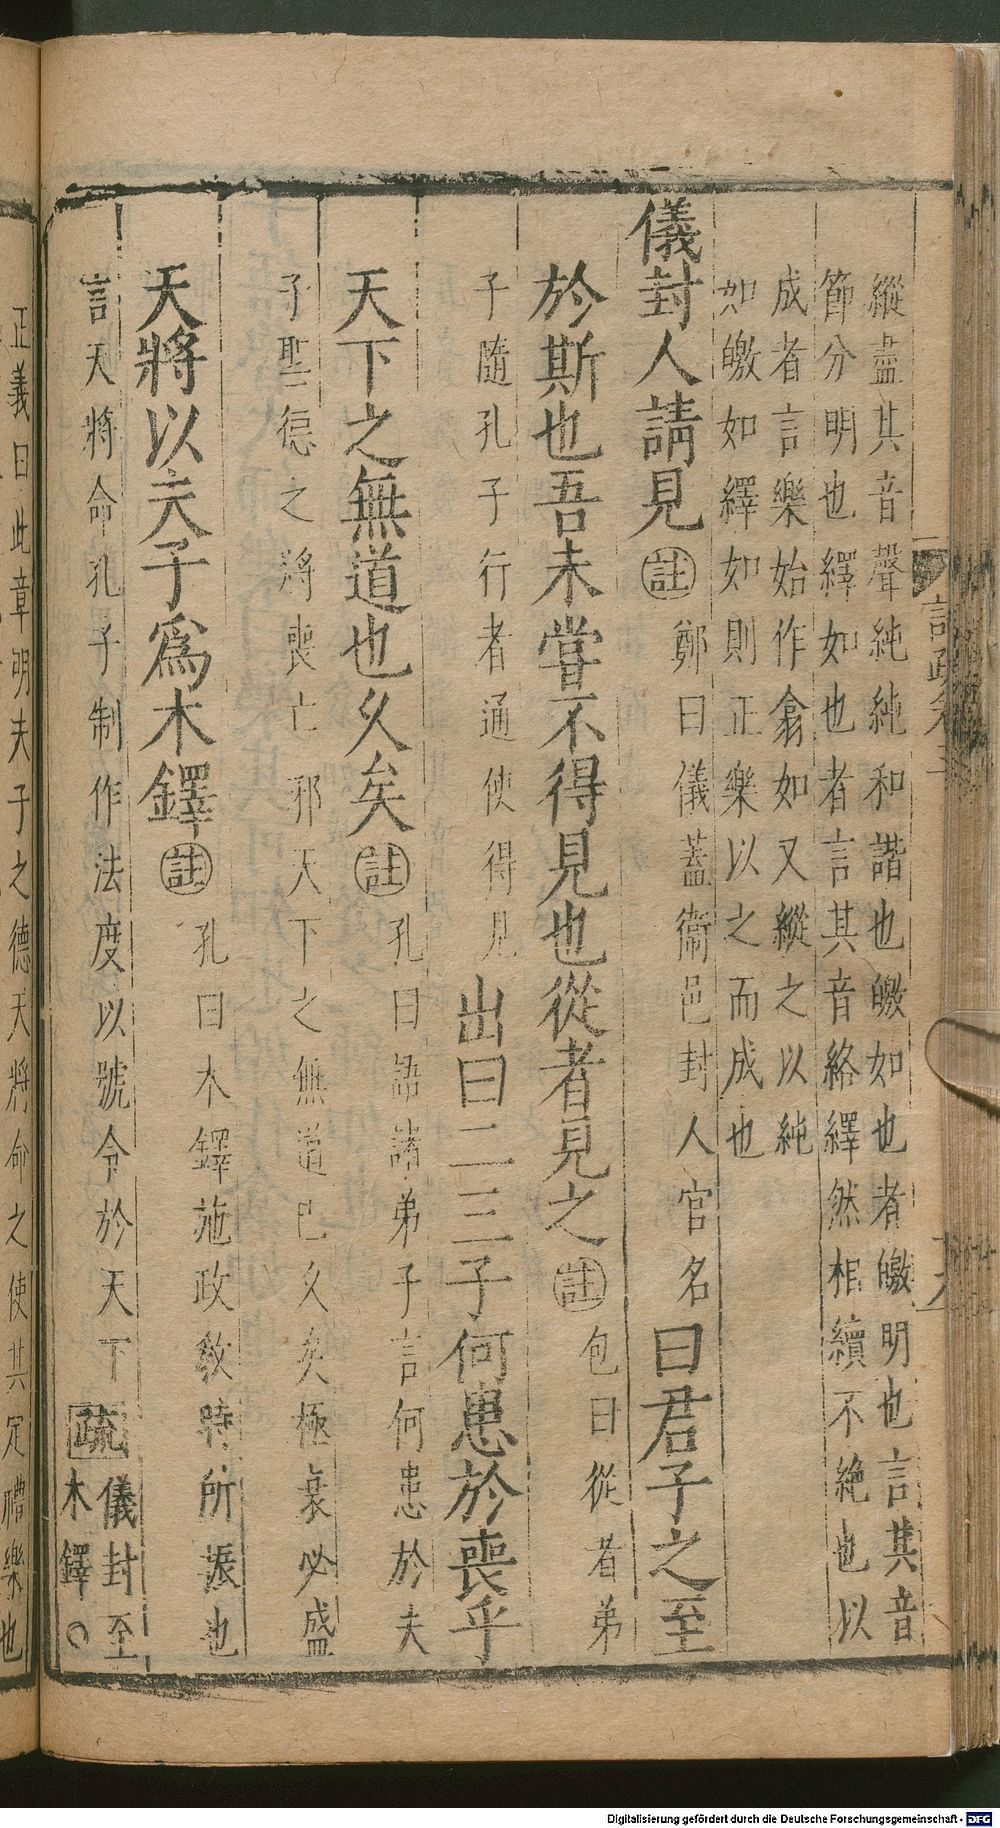 縱盡其音聲純純和諧也皦如也者皦明也言其音
節分明也繹如也者言其音絡繹然相續不絶也以
成者言樂始作翕如又縱之以純
如皦如繹如則正樂以之而成也
儀封人請見註鄭曰儀蓋衞邑封人官名曰君子之至
於斯也吾未嘗不得見也從者見之註包曰從者弟
子隨孔子行者通使得見出曰二三子何患於喪乎
天下之無道也久矣註孔曰語諸弟子言何患於夫
子聖德之將喪亡邪天下之無道已久矣極衰必盛
天將以夫子爲木鐸註孔曰木鐸施政敎時所振也
言天將命孔子制作法度以號令於天下疏儀封至
木鐸○
正義曰此章明夫子之德天將命之使其定禮樂也
Digitalisierung gefördert durch die Deutsche Forschungsgemeinschaft - DFG